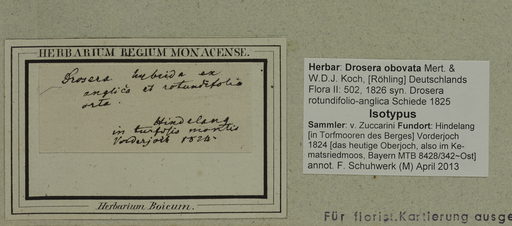 HERBARIUM REGIUM MONACENSE.
Drosera hybrida ex
anglica et rotundifolia
orta.
Hindelang
in turfosis montis
Vorderjoch 1824.
Herbarium Boicum.
Herbar: Drosera obovata Mert. &
W.D.J. Koch, [Röhling] Deutschlands
Flora II: 502, 1826 syn. Drosera
rotundifolio-anglica Schiede 1825
Isotypus
Sammler: v. Zuccarini Fundort: Hindelang
[in Torfmooren des Berges] Vorderjoch
1824 [das heutige Oberjoch, also im Ke-
matsriedmoos, Bayern MTB 8428/342~Ost]
annot. F. Schuhwerk (M) April 2013
Für florist.Kartierung ausge